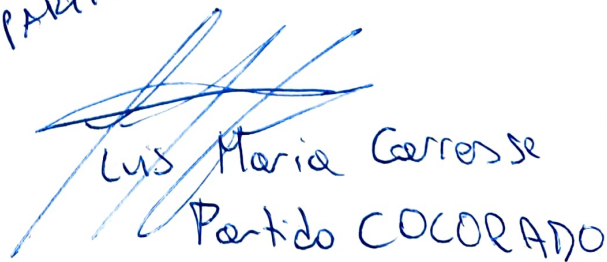 Luis Maria Carresse
Partido COLORADO